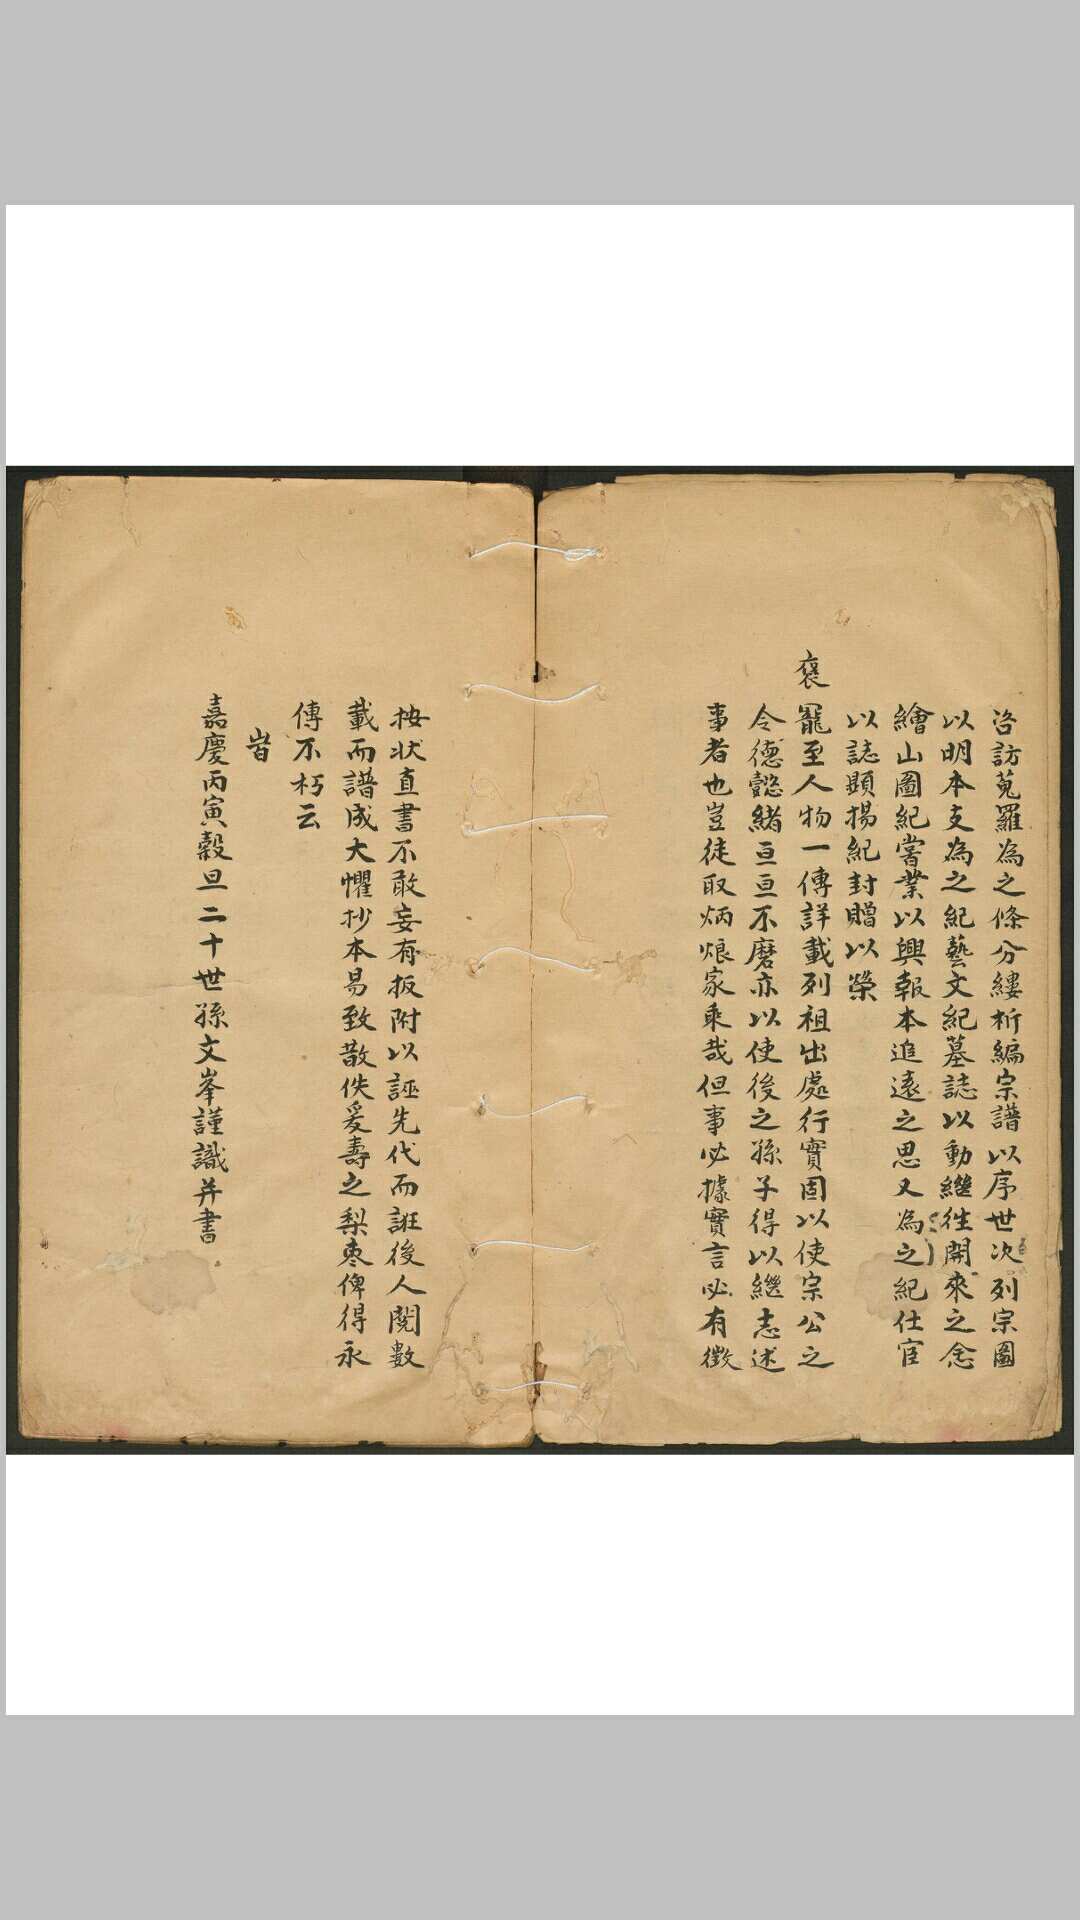 咨訪蒐羅為之條分縷析編宗譜以序世次列宗圖
以明本支為之紀藝文紀墓誌以動繼往開來之念
繪山圖紀嘗業以興報本追遠之思又為之紀仕宦
以誌顯揚紀封贈以榮
褒寵至人物一傳詳載列祖出處行實固以使宗公之
令德懿緒亘亘不磨亦以使後之孫子得以繼志述
事者也豈徒取炳烺家乘哉但事必據實言必有徵
按狀直書不敢妄有扳附以誣先代而誑後人閱數
載而譜成大懼抄本易致散佚爰壽之梨枣俾得永
傳不朽云
旹
嘉慶丙寅穀旦二十世孫文峯謹識并書